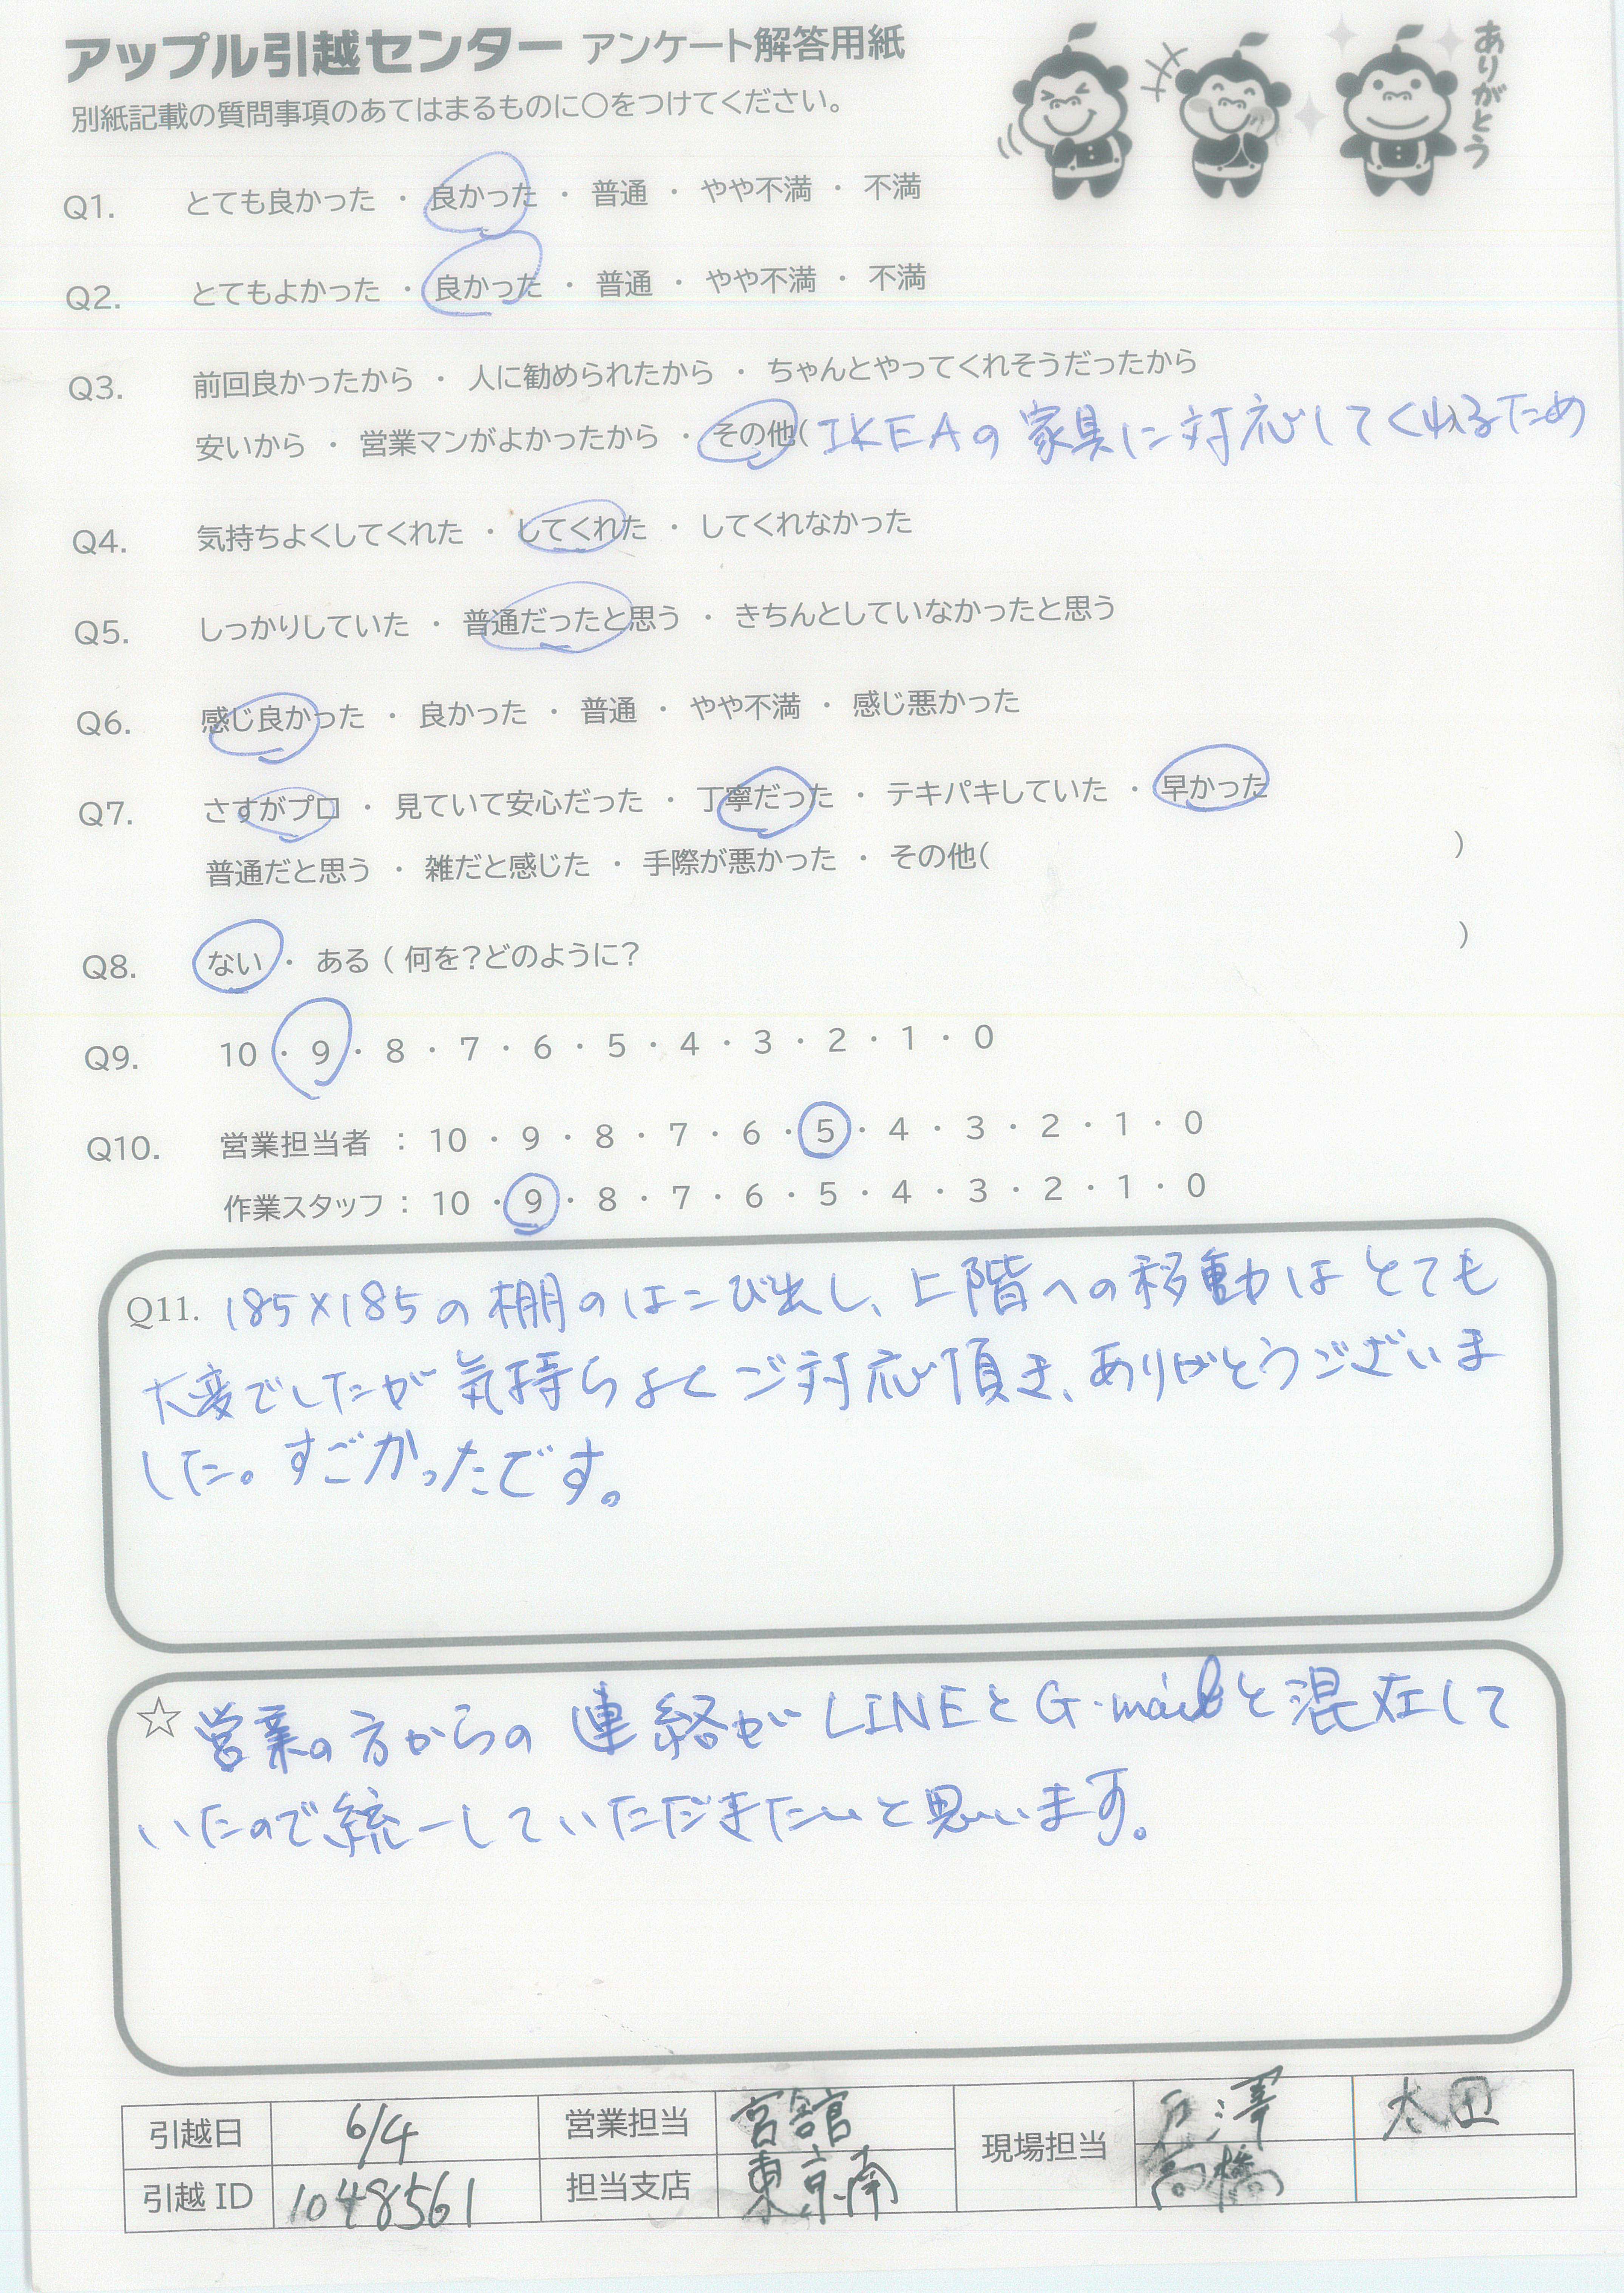 アップル引越センター アンケート解答用紙
別紙記載の質問事項のあてはまるものに〇をつけてください。
ありがとう
Q1. とても良かった ・ 良かった ・ 普通 ・ やや不満 ・ 不満
Q2. とてもよかった ・ 良かった ・ 普通 ・ やや不満 ・ 不満
Q3. 前回良かったから ・ 人に勧められたから ・ ちゃんとやってくれそうだったから
安いから ・ 営業マンがよかったから ・ その他( IKEAの家具に対応してくれるため
Q4. 気持ちよくしてくれた ・ してくれた ・ してくれなかった
Q5. しっかりしていた ・ 普通だったと思う ・ きちんとしていなかったと思う
Q6. 感じ良かった ・ 良かった ・ 普通 ・ やや不満 ・ 感じ悪かった
Q7. さすがプロ ・ 見ていて安心だった ・ 丁寧だった ・ テキパキしていた ・ 早かった
普通だと思う ・ 雑だと感じた ・ 手際が悪かった ・ その他( )
Q8. ない ・ ある ( 何を?どのように? )
Q9. 10 ・ 9 ・ 8 ・ 7 ・ 6 ・ 5 ・ 4 ・ 3 ・ 2 ・ 1 ・ 0
Q10. 営業担当者 : 10 ・ 9 ・ 8 ・ 7 ・ 6 ・ 5 ・ 4 ・ 3 ・ 2 ・ 1 ・ 0
作業スタッフ : 10 ・ 9 ・ 8 ・ 7 ・ 6 ・ 5 ・ 4 ・ 3 ・ 2 ・ 1 ・ 0
Q11. 185×185の棚のはこび出し、上階への移動はとても
大変でしたが気持ちよくご対応頂き、ありがとうございま
した。すごかったです。
☆ 営業の方からの連絡がLINEとG-mailと混在して
いたので統一していただきたいと思います。
引越日 6/4 営業担当 宮舘 現場担当 戸澤 太田
引越 ID 1048561 担当支店 東京南 高橋